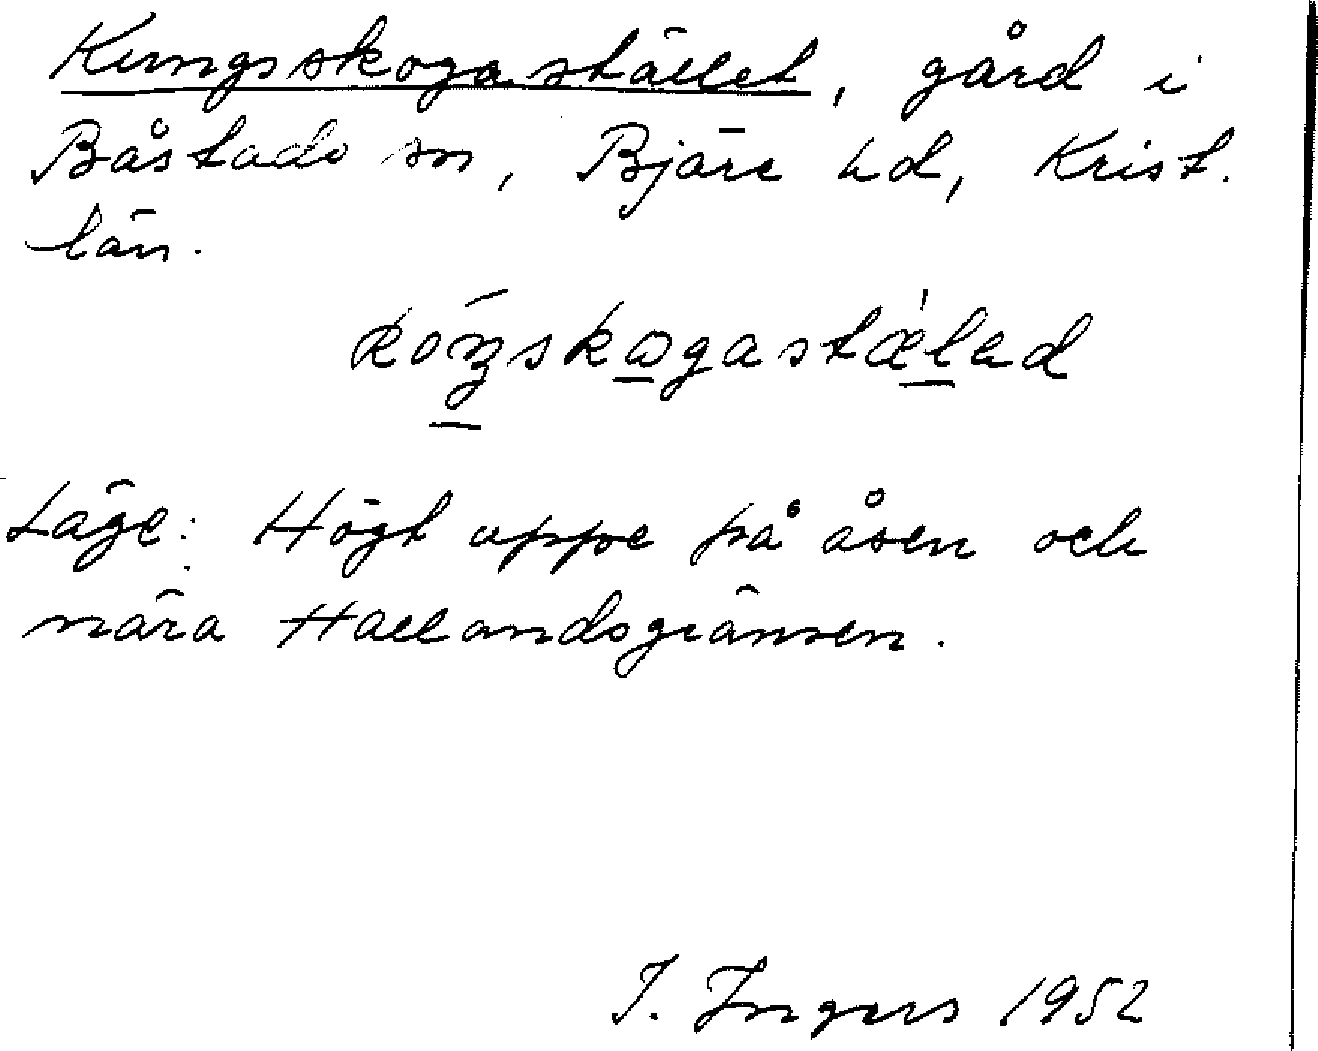 Kungsskogastället, gård i
Båstads sn, Bjäre hd, Krist.
län.
kóŋskogastǽlad
Läge: Högt uppe på åsen och
nära Hallandsgränsen.
I. Ingers 1952